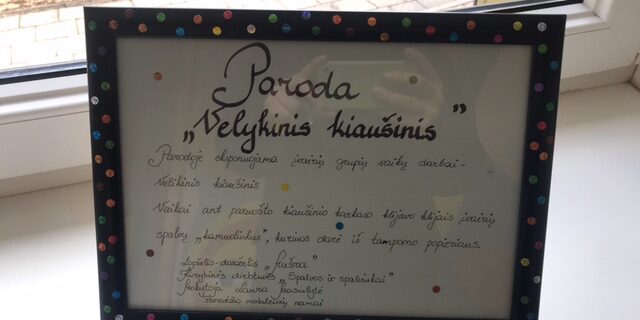 Paroda
„Velykinis kiaušinis”
Parodoje eksponuojama įvairių grupių vaikų darbai -
Velikinis kiaušinis
Vaikai ant paruošto kiaušinio karkaso klijavo klijais įvairių
spalvų „kamuoliukus", kuriuos darė iš tamponų popieriaus
Lopšelis-darželis „Aušra"
Kūrybinės dirbtuvės „Spalvos ir spalviukai"
Mokytoja Laura
moksleivių namai